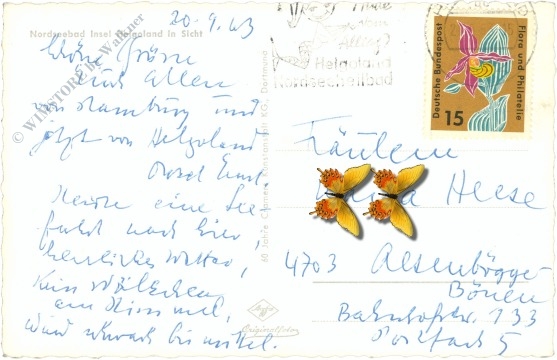 20.9.63
Nordseebad Insel Helgoland in Sicht
© WIMSTORE by Walkner
Schöne Grüße
Euch Allen
von Hamburg und
jetzt von Helgoland
Heute eine See-
fahrt nach hier,
herrliches Wetter,
kein Wölkchen
am Himmel,
Wind schwach bis mittel.
60 Jahre Cramers Kunstanstalt KG., Dortmund
Agfa
Originalfoto
Helgoland
Nordseeheilbad
Deutsche Bundespost
Flora und Philatelie
15
Fräulein
Heese
4703 Altenbögge-
Bönen
Bahnhofstr. 133
Postfach 5